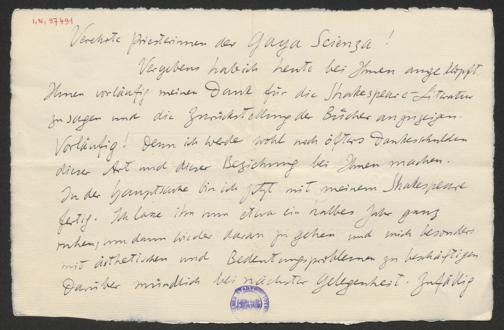 I.N. 97491
Verehrte Priesterinnen der Gaya Scienza!
Vergebens hab ich heute bei Ihnen angeklopft,
Ihnen vorläufig meinen Dank für die Shakespeare-Literatur
zu sagen und die Zurückstellung der Bücher anzuzeigen.
Vorläufig! Denn ich werde wohl noch öfters Dankesschulden
dieser Art und dieser Beziehung bei Ihnen machen.
In der Hauptsache bin ich jetzt mit meinem Shakespeare
fertig. Ich lasse ihn nun etwa ein halbes Jahr ganz
ruhen, um dann wieder daran zu gehen und mich besonders
mit ästhetischen und Bedeutungsproblemen zu beschäftigen
Darüber mündlich bei nächster Gelegenheit. Zufällig